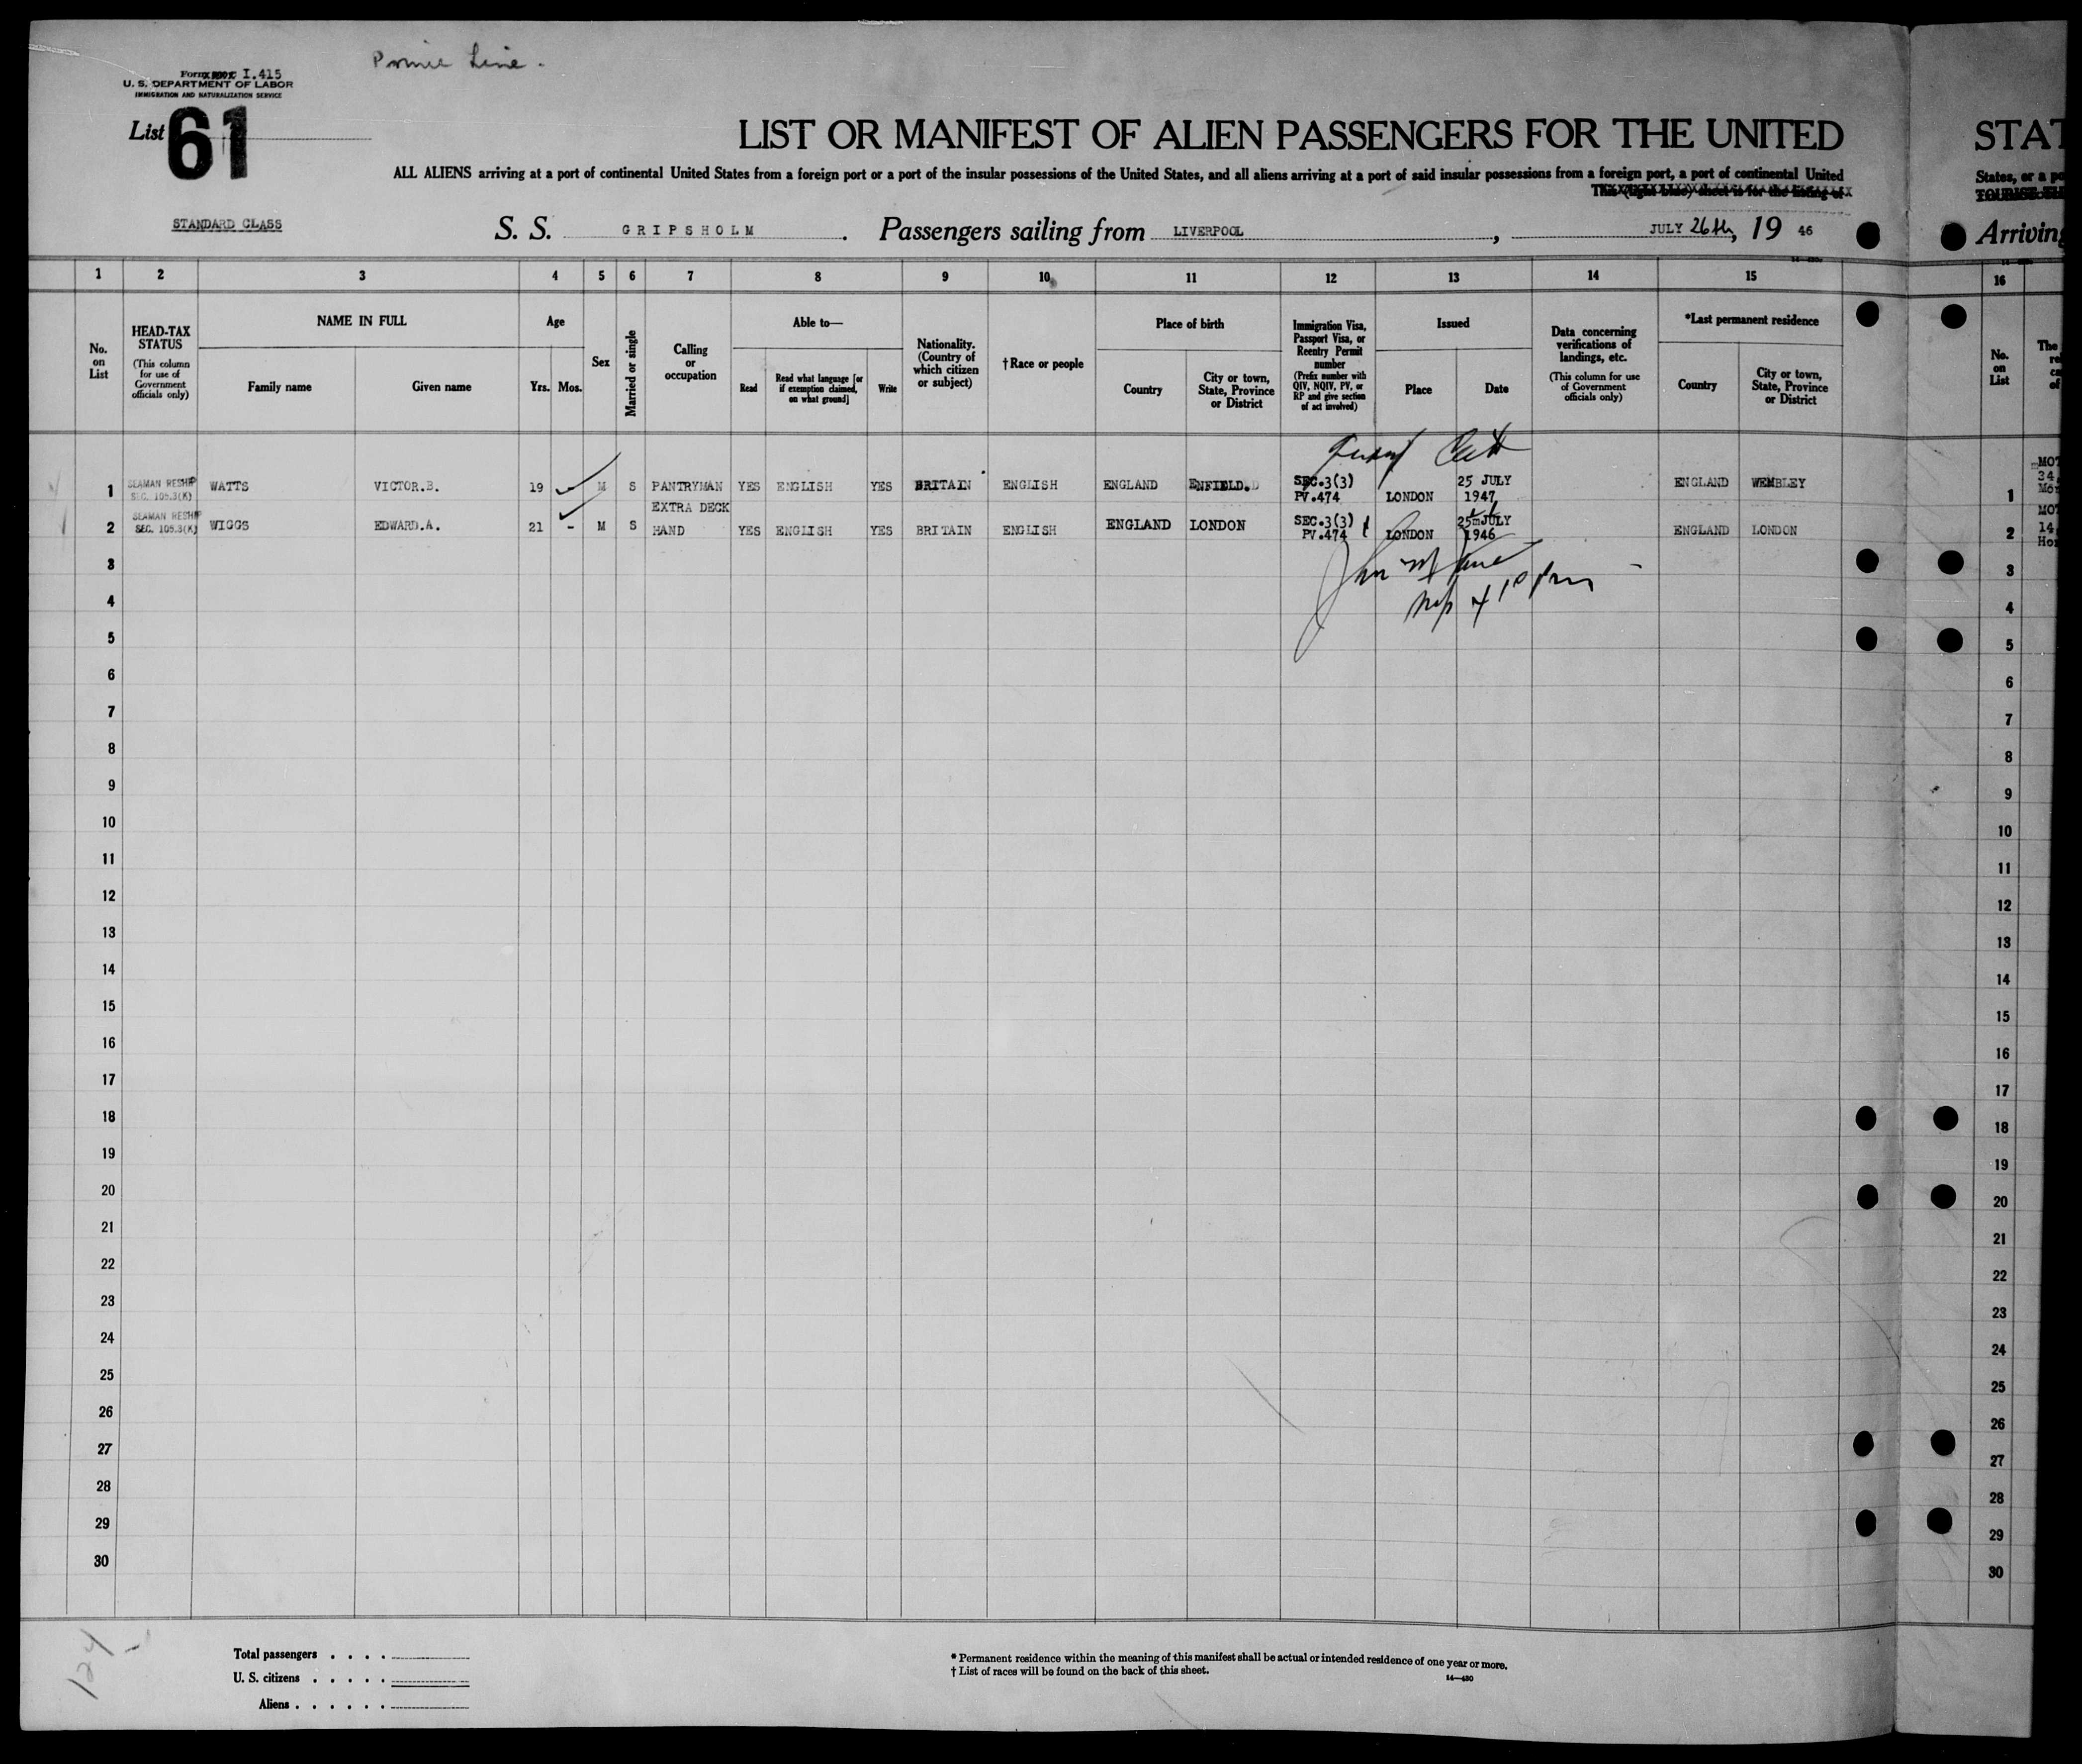 Line.
Form I.415
U. S. DEPARTMENT OF LABOR
IMMIGRATION AND NATURALIZATION SERVICE
List 61
LIST OR MANIFEST OF ALIEN PASSENGERS FOR THE UNITED
STAT
ALL ALIENS arriving at a port of continental United States from a foreign port or a port of the insular possessions of the United States, and all aliens arriving at a port of said insular possessions from a foreign port, a port of continental United
States, or a po
This (light blue) sheet is for the listing of
STANDARD CLASS
S. S. GRIPSHOLM. Passengers sailing from LIVERPOOL, JULY 26th, 19 46
Arriving
1 2 3 4 5 6 7 8 9 10 11 12 13 14 15 16
No. on List
HEAD-TAX STATUS
(This column for use of Government officials only)
NAME IN FULL
Family name
Given name
Age
Yrs. Mos.
Sex
Married or single
Calling or occupation
Able to—
Read
Read what language [or if exemption claimed, on what ground]
Write
Nationality. (Country of which citizen or subject)
†Race or people
Place of birth
Country
City or town, State, Province or District
Immigration Visa, Passport Visa, or Reentry Permit number
(Prefix number with QIV, NQIV, PV, or RP and give section of act involved)
Issued
Place
Date
Data concerning verifications of landings, etc.
(This column for use of Government officials only)
*Last permanent residence
Country
City or town, State, Province or District
No. on List
1 SEAMAN RESHP SEC. 105.3(K) WATTS VICTOR.B. 19 M S PANTRYMAN YES ENGLISH YES BRITAIN ENGLISH ENGLAND ENFIELD. SEC.3(3) PV.474 LONDON 25 JULY 1947 ENGLAND WEMBLEY 1
2 SEAMAN RESHP SEC. 105.3(K) WIGGS EDWARD.A. 21 - M S EXTRA DECK HAND YES ENGLISH YES BRITAIN ENGLISH ENGLAND LONDON SEC.3(3) PV.474 LONDON 25 JULY 1946 ENGLAND LONDON 2
3 3
4 4
5 5
6 6
7 7
8 8
9 9
10 10
11 11
12 12
13 13
14 14
15 15
16 16
17 17
18 18
19 19
20 20
21 21
22 22
23 23
24 24
25 25
26 26
27 27
28 28
29 29
30 30
124
Total passengers
U. S. citizens
Aliens
* Permanent residence within the meaning of this manifest shall be actual or intended residence of one year or more.
† List of races will be found on the back of this sheet.
14—480